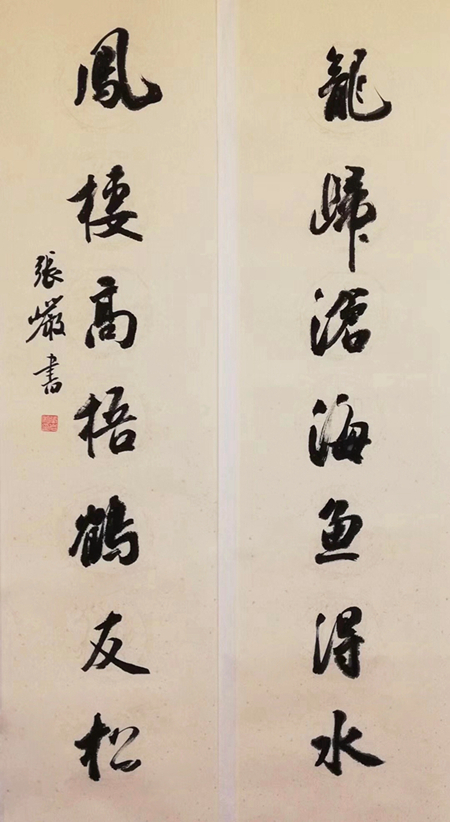 龍歸滄海魚得水
鳳棲高梧鶴友松
張嚴書